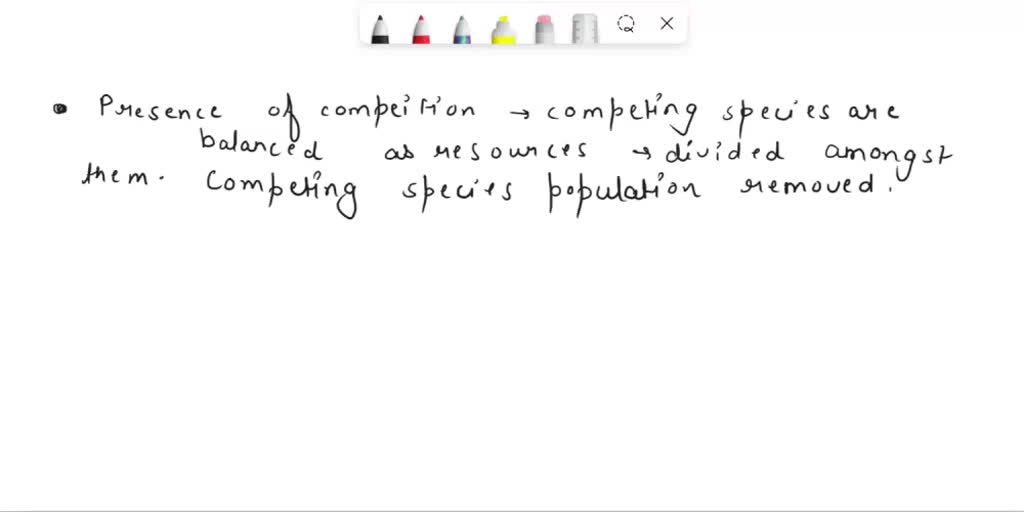 • Presence of compeition → competing species are
balanced as resources → divided amongst
them. Competing species population removed.